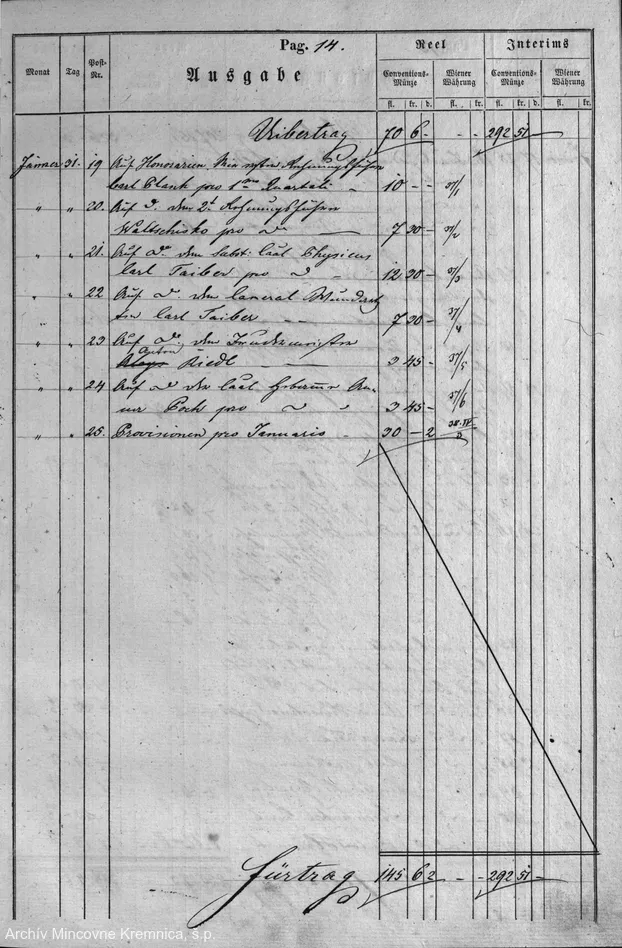 Pag. 14.
Ausgabe
Reel
Interims
Monat Tag Post-Nr.
Conventions-Münze Wiener Währung Conventions-Münze Wiener Währung
fl. kr. d. fl. kr. fl. kr. d. fl. kr.
Uibertrag 70 6 - - - 292 51 -
Jänner 31. 19 Auf Honorarien
Carl Plank pro 1 Quartali 10 - - 37/1
" " 20. Auf d. dem 2t Rechnungsführer
Waltschisko pro 7 30 - 37/2
" " 21. Auf d. dem Physicus
Carl Taiber pro 12 30 - 37/3
" " 22 Auf d. den Cameral Wundarzt
Carl Taiber 7 30 - 37/4
" " 23 Auf d. dem
Anton
Riedl 3 45 - 37/5
" " 24 Auf d. der Hebamme An-
na Poch pro 3 45 - 37/6
" " 25. Provisionen pro Januario - 30 - 2
Fürtrag 145 6 2 - - 292 51 -
Archív Mincovne Kremnica, s.p.